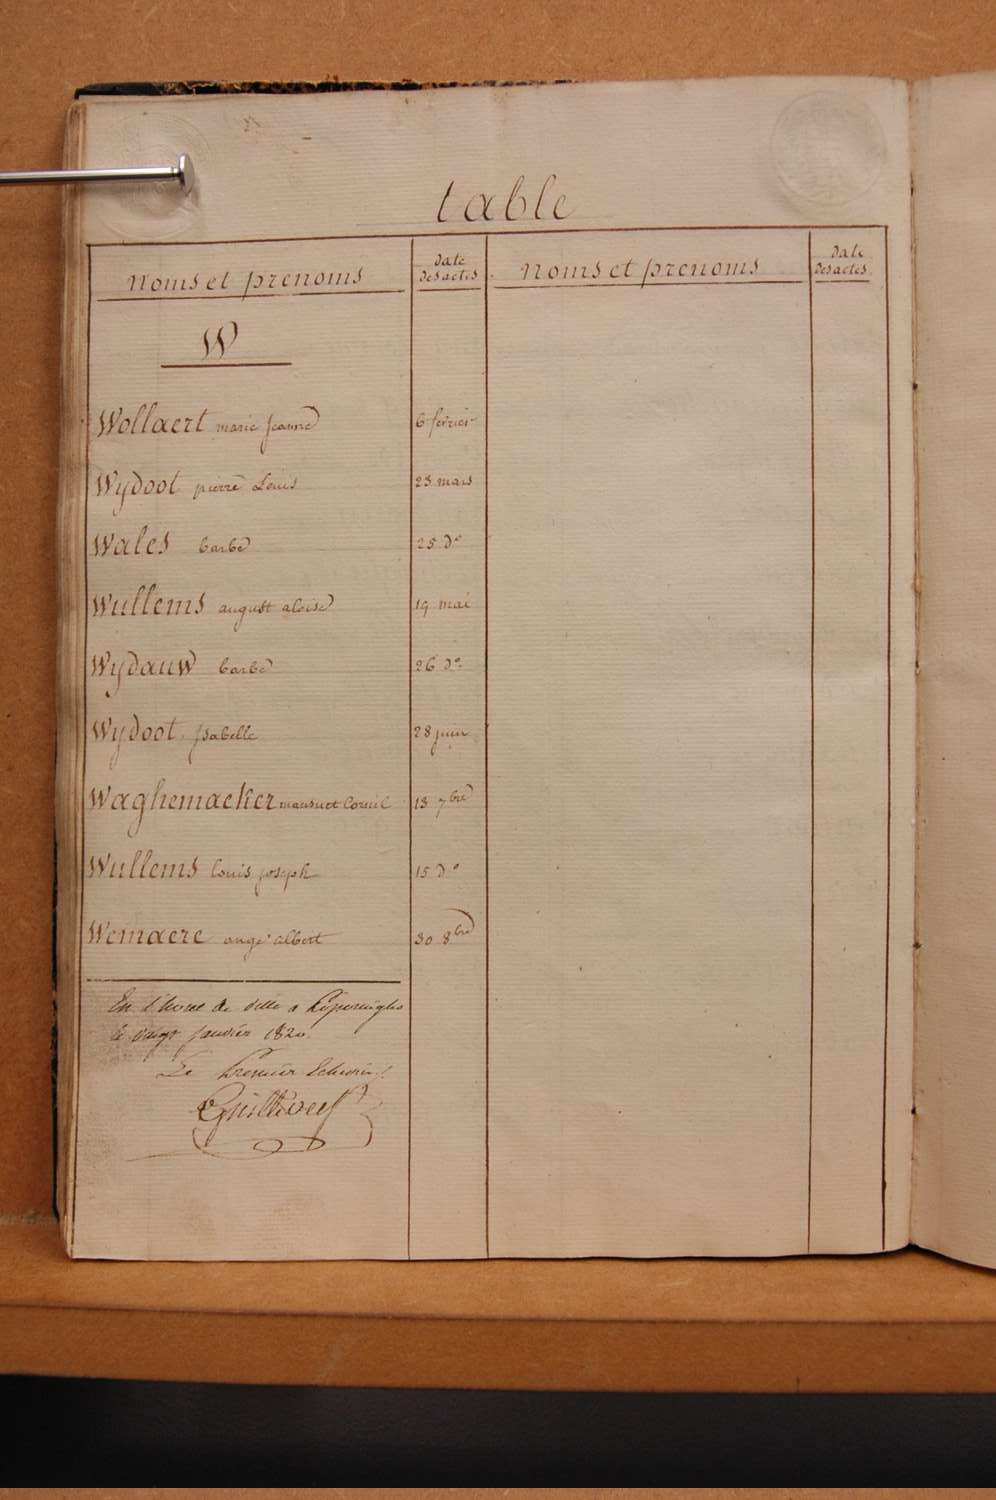 table
Noms et prenoms
Date
Des actes
Noms et prenoms
Date
Des actes
W
Wollaert marie Jeanne 6 fevrier
Wydoot pierre Louis 23 mars
Wales barbe 25 do
Wullems august aloise 19 mai
Wydauw barbe 26 do
Wydoot Isabelle 28 juin
Waghemacker mansuet Corneil 13 7bre
Wullems louis joseph 15 do
Wemaere ange albert 30 8bre
En l'hotel de ville a
le vingt janvier 1820.
Le Premier Echevin